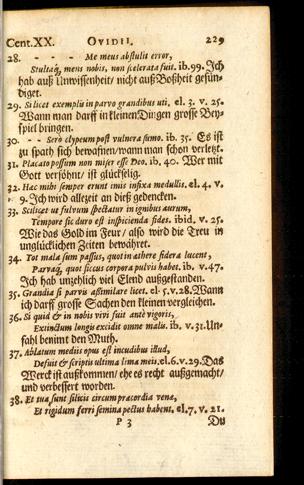 Cent. XX. OVIDII. 229
28. - - - - Me meus abstulit error,
Stultaq́, mens nobis, non scelerata fuit. ib. 99. Ich
hab auß Unwissenheit/ nicht auß Boßheit gesün-
diget.
29. Si licet exemplis in parvo grandibus uti. el. 3. v. 25.
Wann man darff in kleinen Dingen grosse Bey-
spiel bringen.
30. - - Sero clypeum post vulnera sumo. ib. 35. Es ist
zu spath sich bewafnen/ wann man schon verletzt.
31. Placato possum non miser esse Deo. ib. 40. Wer mit
Gott versöhnt/ ist glückselig.
32. Hac mihi semper erunt imis infixa medullis. el. 4. v.
9. Ich wird allezeit an dieß gedencken.
33. Scilicet ut fulvum spectatur in ignibus aurum,
Tempore sic duro est inspicienda fides. ibid. v. 25.
Wie das Gold im Feur/ also wird die Treu in
unglücklichen Zeiten bewähret.
34. Tot mala sum passus, quot in æthere sidera lucent,
Parvaq́, quot siccus corpora pulvis habet. ib. v. 47.
Ich hab unzehlich viel Elend außgestanden.
35. Grandia si parvis assimilare licet. el. 5. v. 28. Wann
ich darff grosse Sachen den kleinen vergleichen.
36. Si quid & in nobis vivi fuit antè vigoris,
Extinctum longis excidit omne malis. ib. v. 31. Un-
fahl benimt den Muth.
37. Ablatum mediis opus est incudibus illud,
Defuit & scriptis ultima lima meis. el. 6. v. 29. Das
Werck ist außkommen/ ehe es recht außgemacht/
und verbessert worden.
38. Et tua sunt silicis circum præcordia venæ,
Et rigidum ferri semina pectus habent. el. 7. v. 21.
P 3 Du